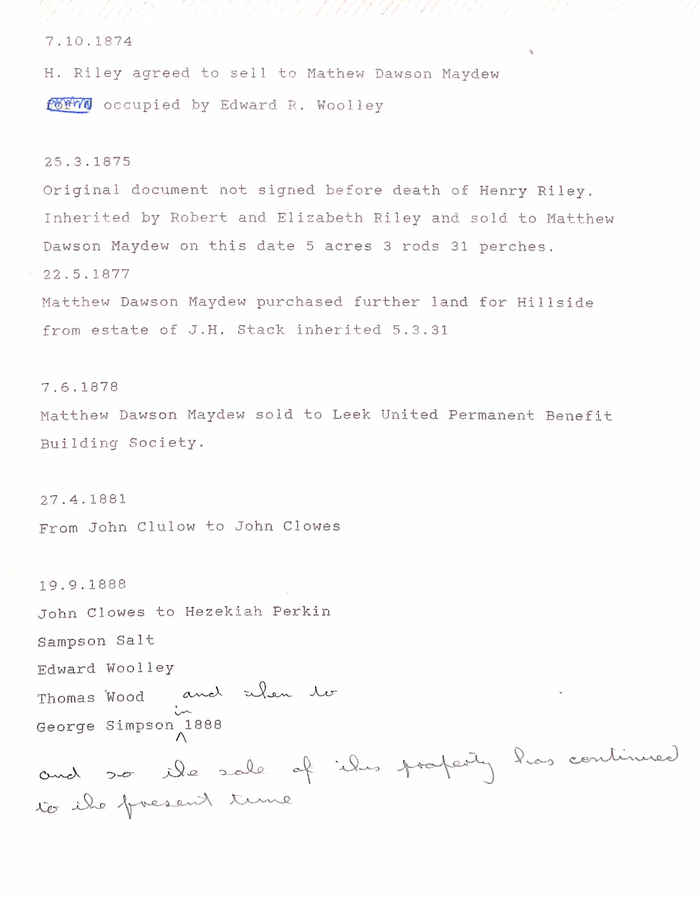 7.10.1874
H. Riley agreed to sell to Mathew Dawson Maydew
occupied by Edward R. Woolley
25.3.1875
Original document not signed before death of Henry Riley.
Inherited by Robert and Elizabeth Riley and sold to Matthew
Dawson Maydew on this date 5 acres 3 rods 31 perches.
22.5.1877
Matthew Dawson Maydew purchased further land for Hillside
from estate of J.H. Stack inherited 5.3.31
7.6.1878
Matthew Dawson Maydew sold to Leek United Permanent Benefit
Building Society.
27.4.1881
From John Clulow to John Clowes
19.9.1888
John Clowes to Hezekiah Perkin
Sampson Salt
Edward Woolley
Thomas Wood and then to
George Simpson in 1888
and so the sale of this property has continued
to the present time